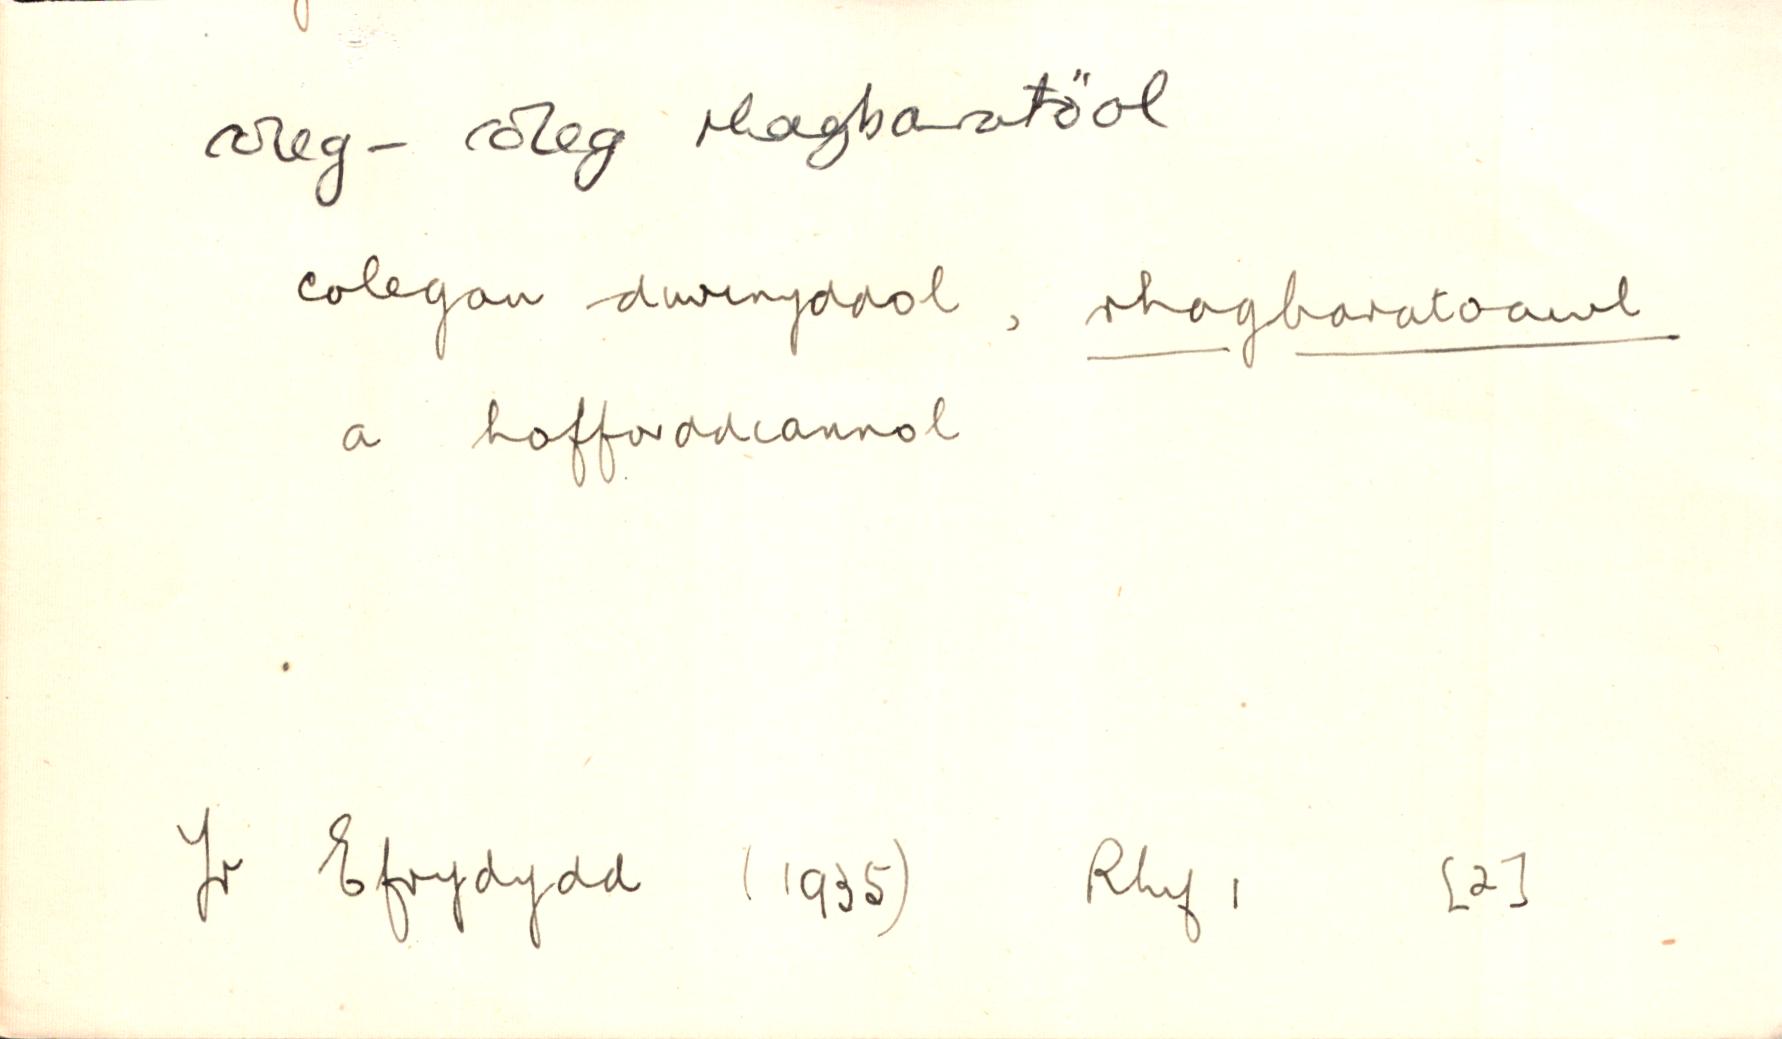 coleg – coleg rhagbaratöol
colegau duwinyddol, rhagbaratoawl
a hofforddiannol
Yr Efrydydd (1935) Rhif 1 [2]